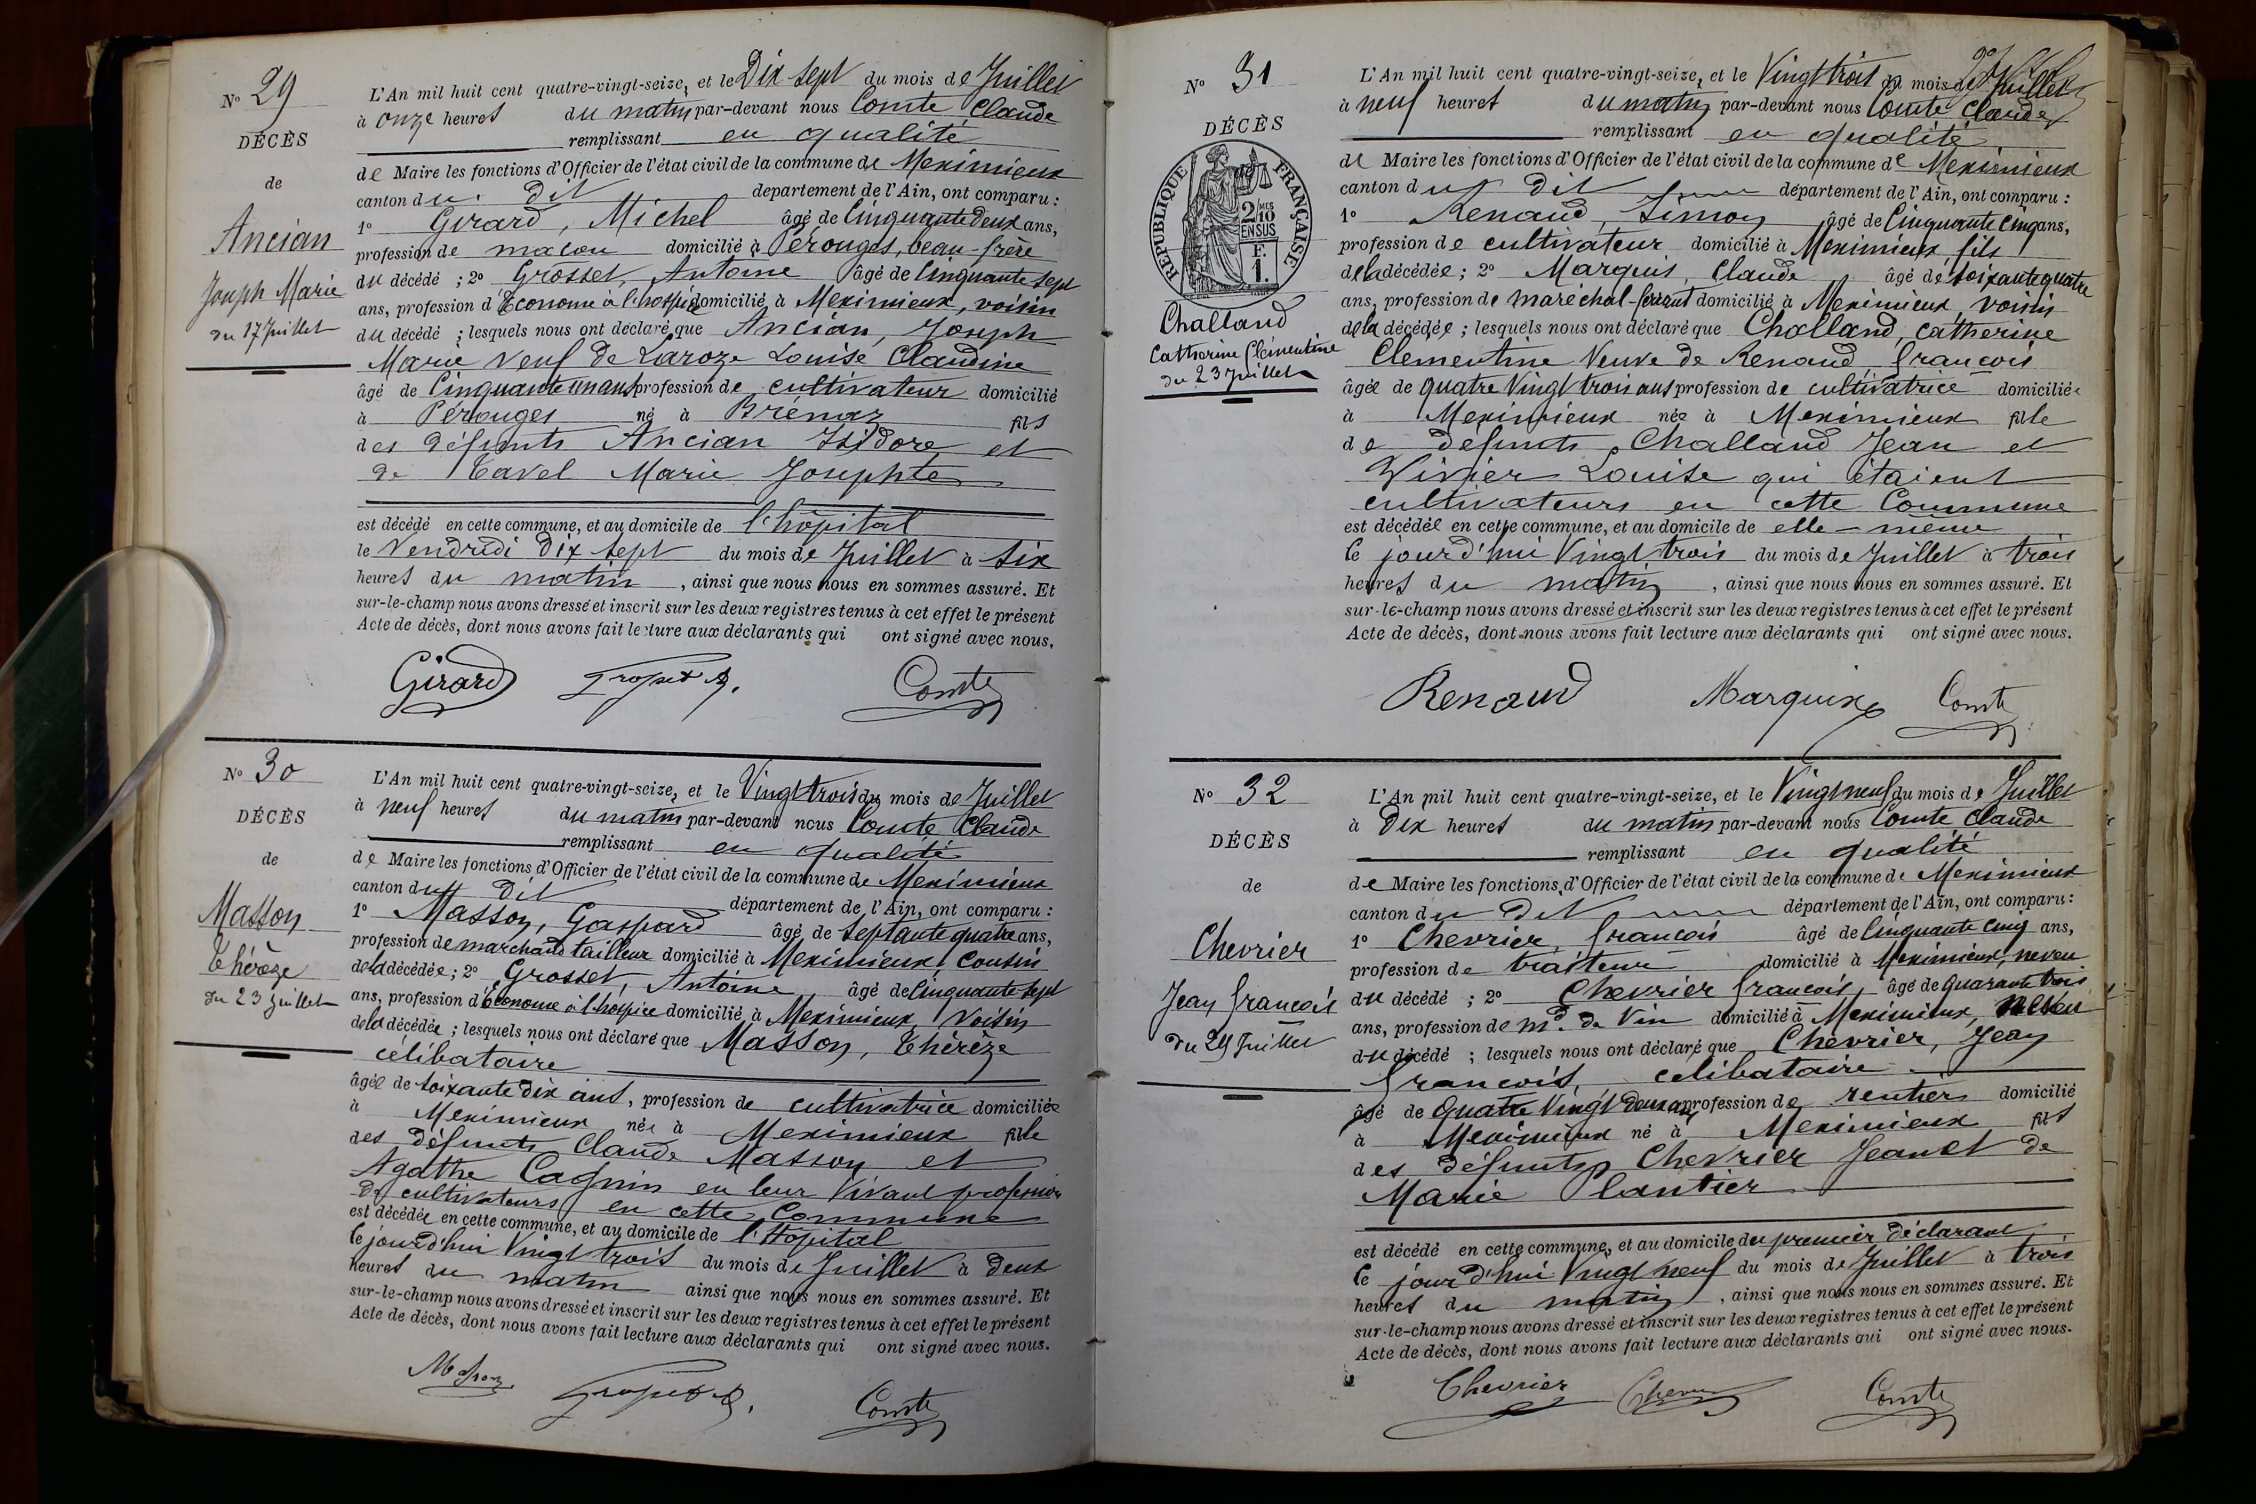 No 29
DÉCÈS
de
Ancian
Joseph Marie
du 17 Juillet
L'An mil huit cent quatre-vingt-seize, et le Dix sept du mois de Juillet
à onze heures du matin par-devant nous Comte Claude
remplissant en qualité
de Maire les fonctions d'Officier de l'état civil de la commune de Meximieux
canton du dit département de l'Ain, ont comparu :
1o Girard, Michel âgé de Cinquante deux ans,
profession de maçon domicilié à Pérouges, beau-frère
du décédé ; 2o Grosset, Antoine âgé de Cinquante sept
ans, profession d'Econome à l'hospice domicilié à Meximieux, voisin
du décédé ; lesquels nous ont déclaré que Ancian, Joseph
Marie veuf de Laroze Louise Claudine
âgé de Cinquante un ans profession de cultivateur domicilié
à Pérouges né à Brénaz fils
des défunts Ancian Isidore et
de Tavel Marie Josephte
est décédé en cette commune, et au domicile de l'hôpital
le Vendredi Dix sept du mois de Juillet à six
heures du matin, ainsi que nous nous en sommes assuré. Et
sur-le-champ nous avons dressé et inscrit sur les deux registres tenus à cet effet le présent
Acte de décès, dont nous avons fait lecture aux déclarants qui ont signé avec nous.
Girard Grosset A. Comte
No 30
DÉCÈS
de
Masson
Thérèze
du 23 Juillet
L'An mil huit cent quatre-vingt-seize, et le Vingt trois du mois de Juillet
à neuf heures du matin par-devant nous Comte Claude
remplissant en qualité
de Maire les fonctions d'Officier de l'état civil de la commune de Meximieux
canton du dit département de l'Ain, ont comparu :
1o Masson, Gaspard âgé de septante quatre ans,
profession de marchand tailleur domicilié à Meximieux, Cousin
de la décédée ; 2o Grosset, Antoine âgé de Cinquante sept
ans, profession d'Econome à l'hospice domicilié à Meximieux, Voisin
de la décédée ; lesquels nous ont déclaré que Masson, Thérèze
célibataire
âgée de soixante dix ans, profession de cultivatrice domiciliée
à Meximieux née à Meximieux fille
des défunts Claude Masson et
Agathe Cagnin en leur Vivant profession
de cultivateurs en cette Commune
est décédée en cette commune, et au domicile de l'Hôpital
le jourd'hui Vingt trois du mois de Juillet à deux
heures du matin ainsi que nous nous en sommes assuré. Et
sur-le-champ nous avons dressé et inscrit sur les deux registres tenus à cet effet le présent
Acte de décès, dont nous avons fait lecture aux déclarants qui ont signé avec nous.
Masson Grosset A. Comte
No 31
DÉCÈS
RÉPUBLIQUE FRANÇAISE
2/10 MES
EN SUS
F.
1.
Challand
Catherine Clémentine
du 23 Juillet
L'An mil huit cent quatre-vingt-seize, et le Vingt trois du mois de Juillet
à neuf heures du matin par-devant nous Comte Claude
remplissant en qualité
de Maire les fonctions d'Officier de l'état civil de la commune de Meximieux
canton du dit département de l'Ain, ont comparu :
1o Renaud, Simon âgé de Cinquante cinq ans,
profession de cultivateur domicilié à Meximieux, fils
de la décédée ; 2o Marquis, Claude âgé de soixante quatre
ans, profession de maréchal-ferrant domicilié à Meximieux, voisin
de la décédée ; lesquels nous ont déclaré que Challand, Catherine
Clémentine Veuve de Renaud François
âgée de quatre Vingt trois ans profession de cultivatrice domiciliée
à Meximieux née à Meximieux fille
de défunts Challand Jean et
Vivier Louise qui étaient
cultivateurs en cette Commune
est décédée en cette commune, et au domicile de elle-même
le jourd'hui Vingt trois du mois de Juillet à trois
heures du matin, ainsi que nous nous en sommes assuré. Et
sur-le-champ nous avons dressé et inscrit sur les deux registres tenus à cet effet le présent
Acte de décès, dont nous avons fait lecture aux déclarants qui ont signé avec nous.
Renaud Marquis Comte
No 32
DÉCÈS
de
Chevrier
Jean François
du 29 Juillet
L'An mil huit cent quatre-vingt-seize, et le Vingt neuf du mois de Juillet
à Dix heures du matin par-devant nous Comte Claude
remplissant en qualité
de Maire les fonctions d'Officier de l'état civil de la commune de Meximieux
canton du dit département de l'Ain, ont comparu :
1o Chevrier, François âgé de Cinquante cinq ans,
profession de traiteur domicilié à Meximieux, neveu
du décédé ; 2o Chevrier François âgé de quarante trois
ans, profession de Md. de Vin domicilié à Meximieux, neveu
du décédé ; lesquels nous ont déclaré que Chevrier, Jean
François, célibataire
âgé de quatre Vingt deux ans profession de rentier domicilié
à Meximieux né à Meximieux fils
des défunts Chevrier Jean et de
Marie Plantier
est décédé en cette commune, et au domicile du premier déclarant
le jourd'hui Vingt neuf du mois de Juillet à trois
heures du matin, ainsi que nous nous en sommes assuré. Et
sur-le-champ nous avons dressé et inscrit sur les deux registres tenus à cet effet le présent
Acte de décès, dont nous avons fait lecture aux déclarants qui ont signé avec nous.
Chevrier Chevrier Comte